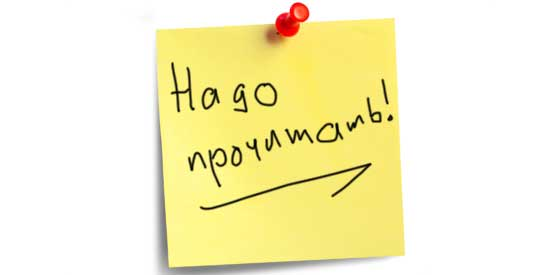 Надо
прочитать!